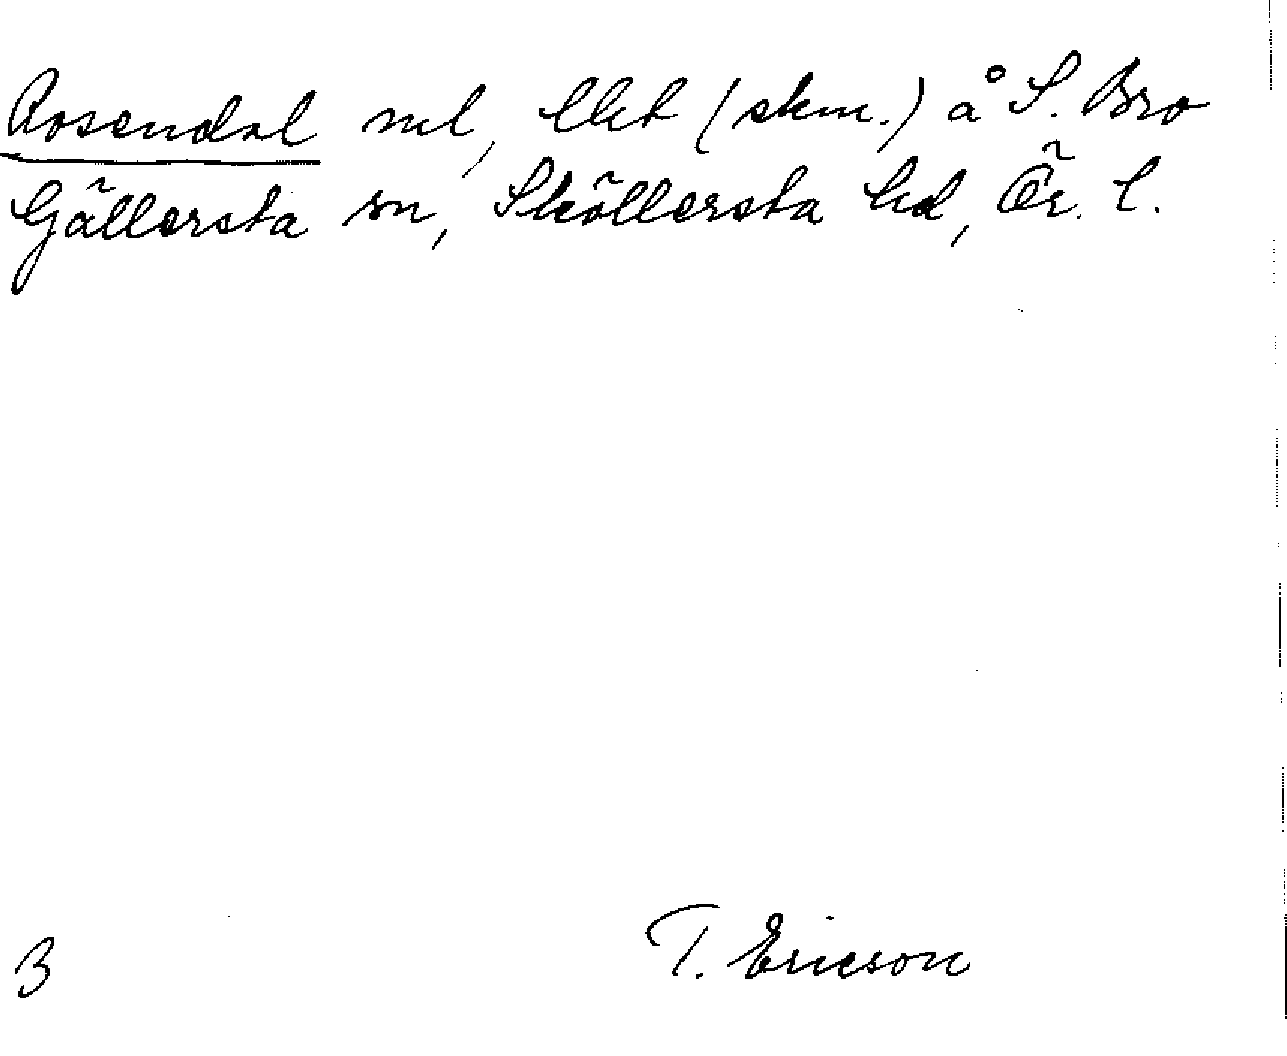 Rosendal nel, lht (skm.) å S. Bro
Gällersta sn, Sköllersta hd, Ör. l.
3 T. Ericson